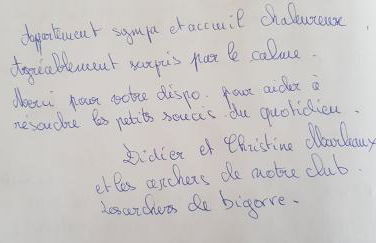 Appartement sympa et accueil chaleureux.
Agréablement surpris par le calme.
Merci pour votre dispo. pour aider à
résoudre les petits soucis du quotidien.
Didier et Christine
et les archers de notre club.
Les archers de bigorre.